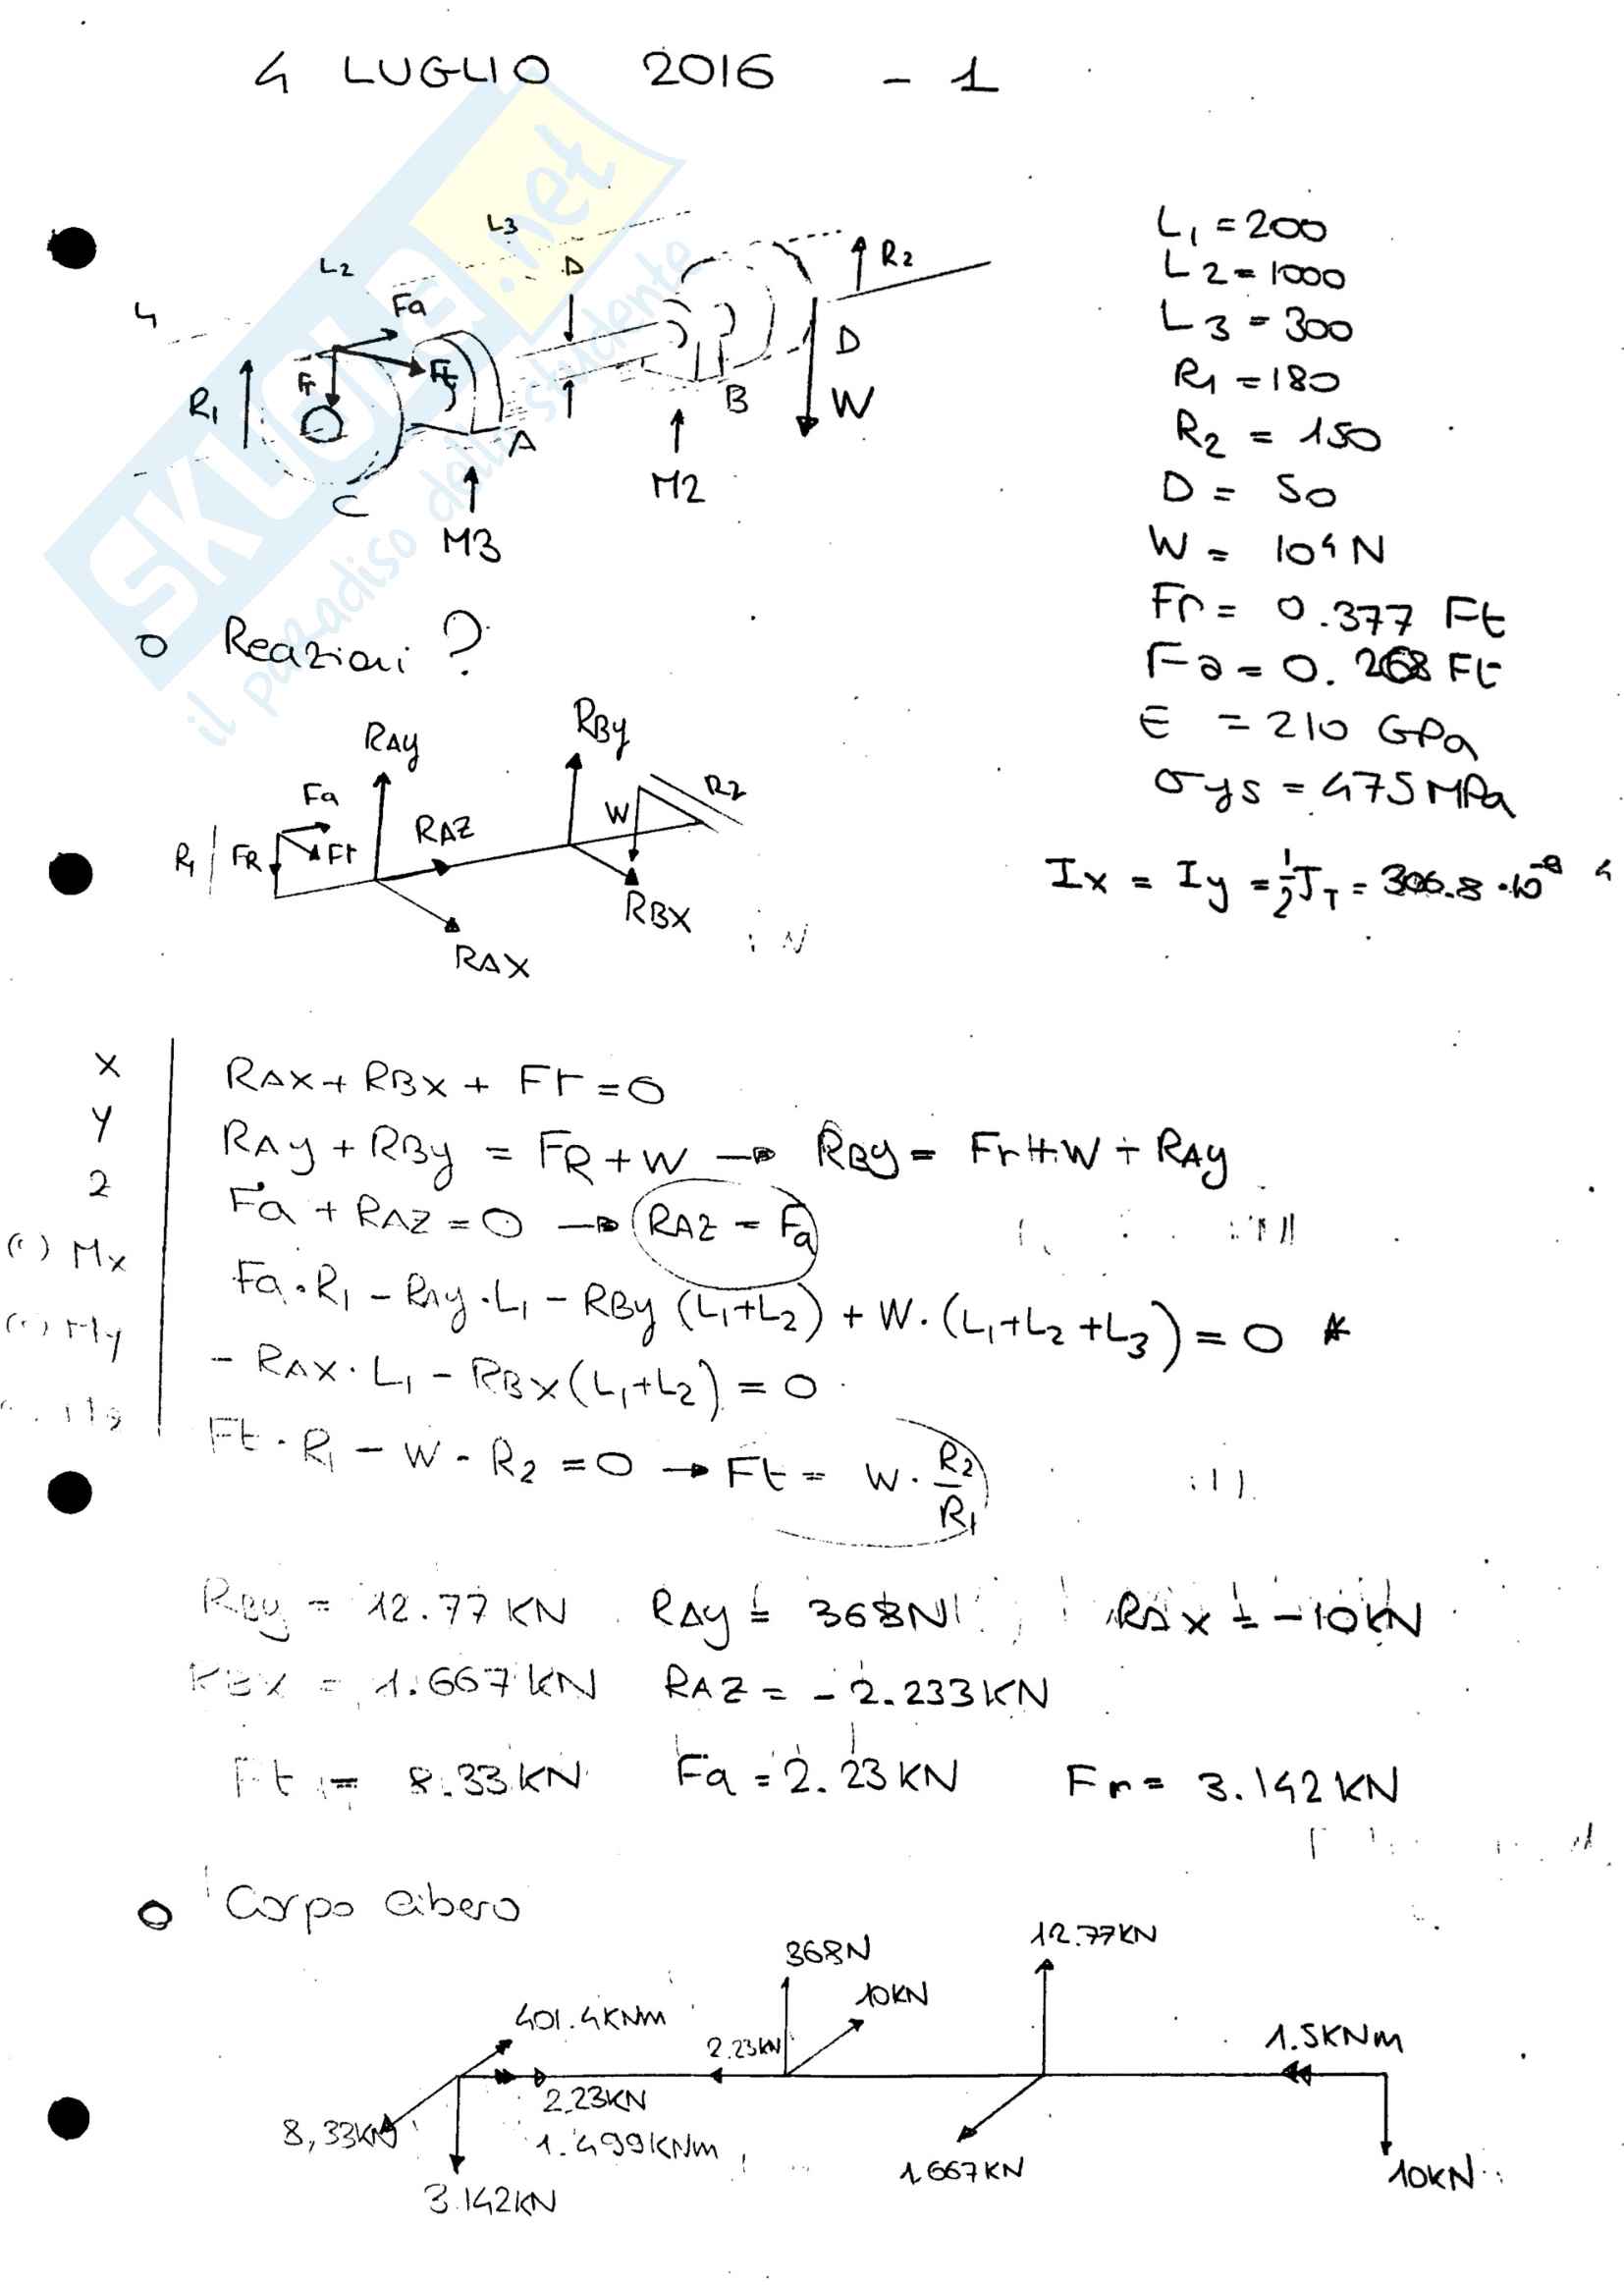 4 LUGLIO 2016 - 1
SKUOLA.net
il paradiso dello studente
L3
L2
D
R2
Fa
Fr
Ft
R1
D
B
W
A
C
M2
M3
L1 = 200
L2 = 1000
L3 = 300
R1 = 180
R2 = 150
D = 50
W = 10⁴ N
Fr = 0.377 Ft
Fa = 0.268 Ft
E = 210 GPa
σys = 475 MPa
Ix = Iy = 1/2 JT = 306.8 · 10⁻⁹
o Reazioni ?
RAy
RBy
R2
Fa
W
RAZ
R1
FR
Ft
RBX
RAX
X RAX + RBX + Ft = 0
Y RAy + RBy = FR + W → RBy = Fr + W + RAy
Z Fa + RAZ = 0 → RAZ = Fa
Mx Fa · R1 - RAy · L1 - RBy (L1+L2) + W · (L1+L2+L3) = 0 *
My - RAX · L1 - RBX (L1+L2) = 0
Ft · R1 - W · R2 = 0 → Ft = W · R2/R1
RBy = 12.77 KN RAy = 368N RAX = -10KN
RBX = 1.667 KN RAZ = -2.233 KN
Ft = 8.33 KN Fa = 2.23 KN Fr = 3.142 KN
o Corpo libero
12.77KN
368N
10KN
401.4KNm
2.23KN
1.5KNm
2.23KN
8,33KN
1.499KNm
1.667KN
10KN
3.142KN